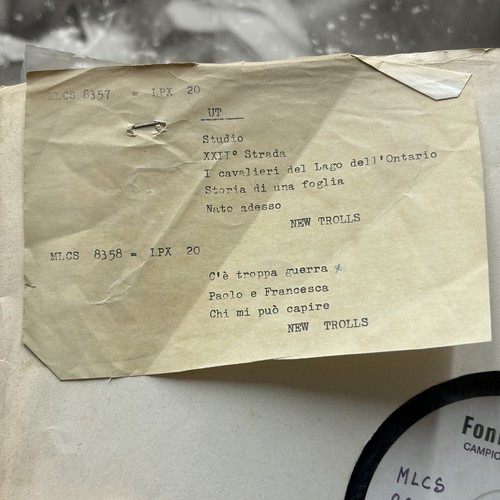 MLCS 8357 = LPX 20
UT
Studio
XXII° Strada
I cavalieri del Lago dell'Ontario
Storia di una foglia
Nato adesso
NEW TROLLS
MLCS 8358 = LPX 20
C'è troppa guerra x
Paolo e Francesca
Chi mi può capire
NEW TROLLS
MLCS